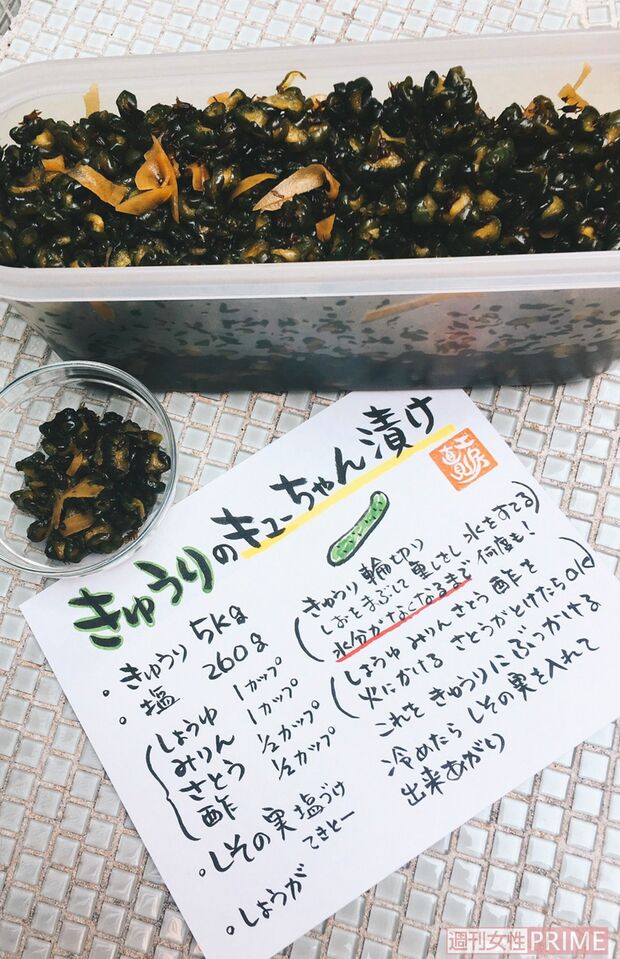 きゅうりのキューちゃん漬け
工房
直見
・きゅうり 5kg
・塩 260g
しょうゆ 1カップ
みりん 1カップ
さとう 1/2カップ
酢 1/2カップ
・しその実塩づけ
てきとー
・しょうが
きゅうり輪切り
しおをまぶして重しをし 水をすてる
水分がなくなるまで 何度も!
しょうゆ みりん さとう 酢を
火にかける さとうがとけたらOK
これを きゅうりに ぶっかける
冷めたら しその実を入れて
出来あがり
週刊女性PRIME